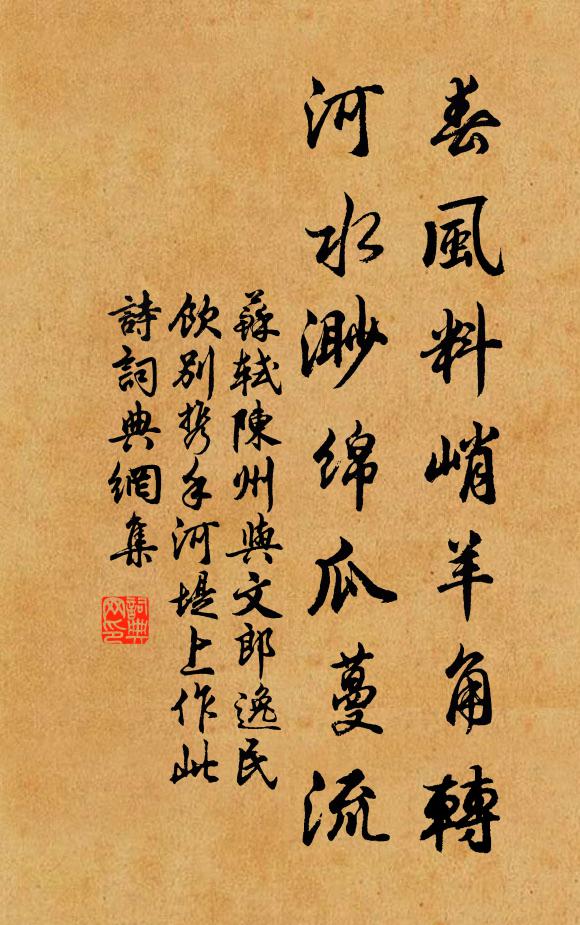 春風料峭羊角轉
河水渺綿瓜蔓流
蘇軾陳州與文郎逸民
飲別携手河堤上作此
詩詞典網集
詞典
网印